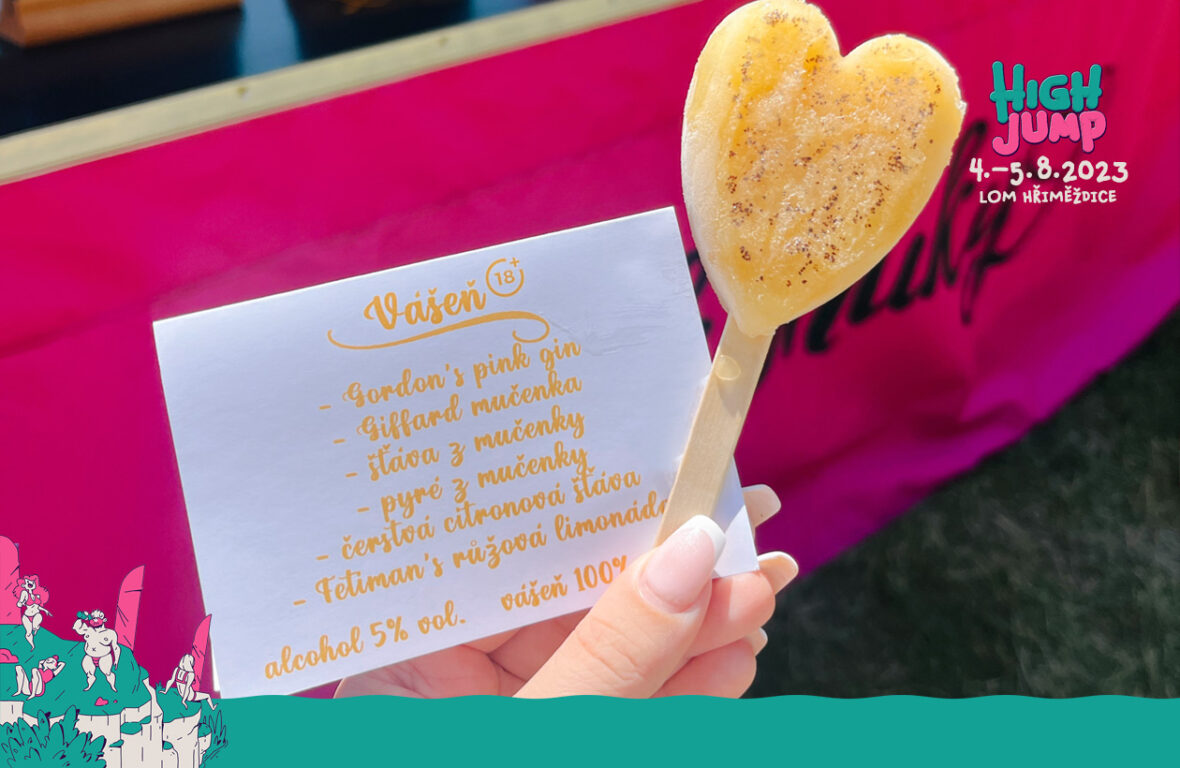 HIGH
JUMP
4.–5.8.2023
LOM HŘIMĚŽDICE
Vášeň 18+
- Gordon's pink gin
- Giffard mučenka
- šťáva z mučenky
- pyré z mučenky
- čerstvá citronová šťáva
- Fetiman's růžová limonáda
alcohol 5% vol. vášeň 100%